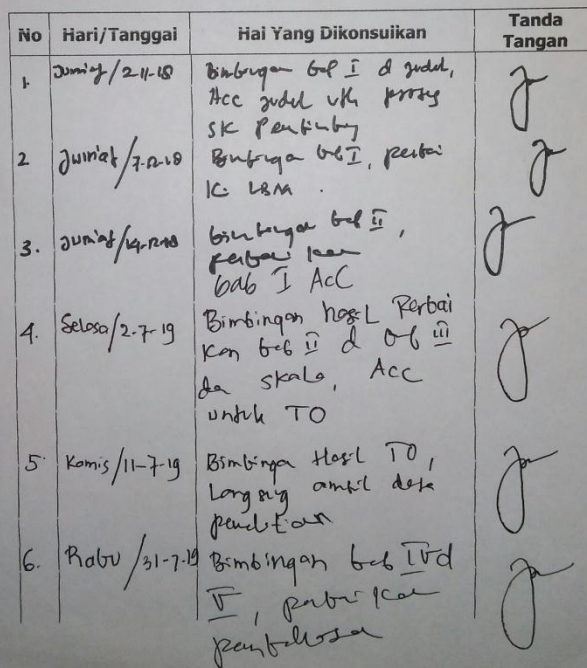 No Hari/Tanggal Hal Yang Dikonsulkan Tanda Tangan
1. Jum'at/2-11-18 Bimbingan bab I d judul,
Acc judul utk proses
SK Pembimbing
2 Jum'at/7-12-18 Bimbingan bab I, perbai
ki LBM.
3. Jum'at/14-12-18 bimbingan bab II,
perbaikan
bab I ACC
4. Selasa/2-7-19 Bimbingan hasil Perbai
kan bab II d bab III
dan skala, ACC
untuk TO
5. Kamis/11-7-19 Bimbingan Hasil TO,
Langsung ambil data
penelitian
6. Rabu/31-7-19 Bimbingan bab IV d
V, perbaikan
pembahasan